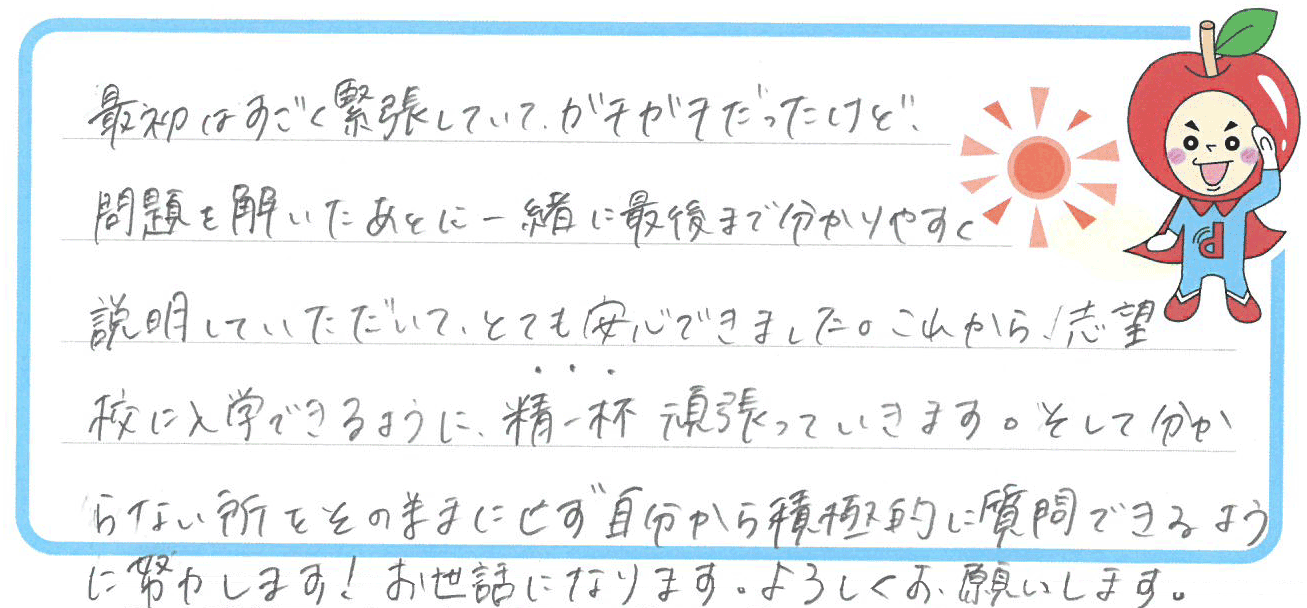 最初はすごく緊張していて、ガチガチだったけど、
問題を解いたあとに一緒に最後まで分かりやすく
説明していただいて、とても安心できました。これから、志望
校に入学できるように、精一杯頑張っていきます。そして分か
らない所をそのままにせず自分から積極的に質問できるよう
に努力します！お世話になります。よろしくお願いします。